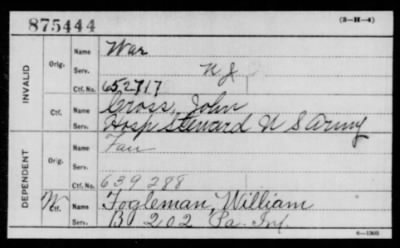 875444 (3-H-4)
INVALID
Orig. Name War
Serv. N J
Ctf. No. 652717
Ctf. Name Cross, John
Serv. Hosp Steward U S Army
DEPENDENT
Orig. Name
Serv.
Ctf. No. 639288
W Ctf. Name Fogleman, William
Serv. B 202 Pa. Inf